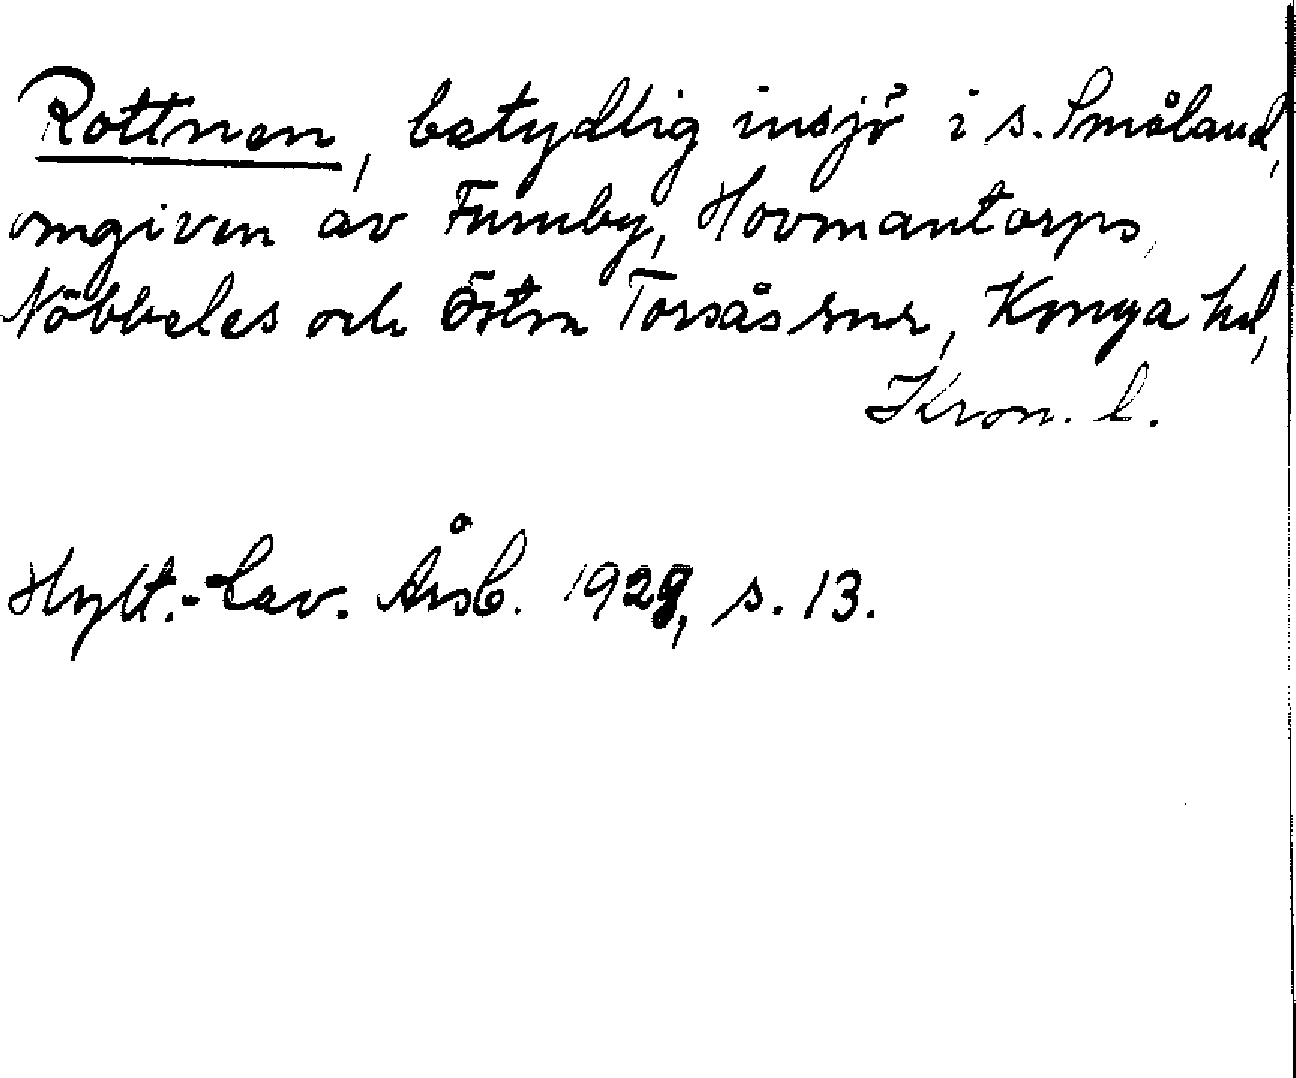 Rottnen, betydlig insjö i s. Småland,
omgiven av Furuby, Hovmantorps,
Nöbbeles och Östra Torsås snr, Konga hd,
Kron. l.
Hylt.-Cav. Årsb. 1929, s. 13.